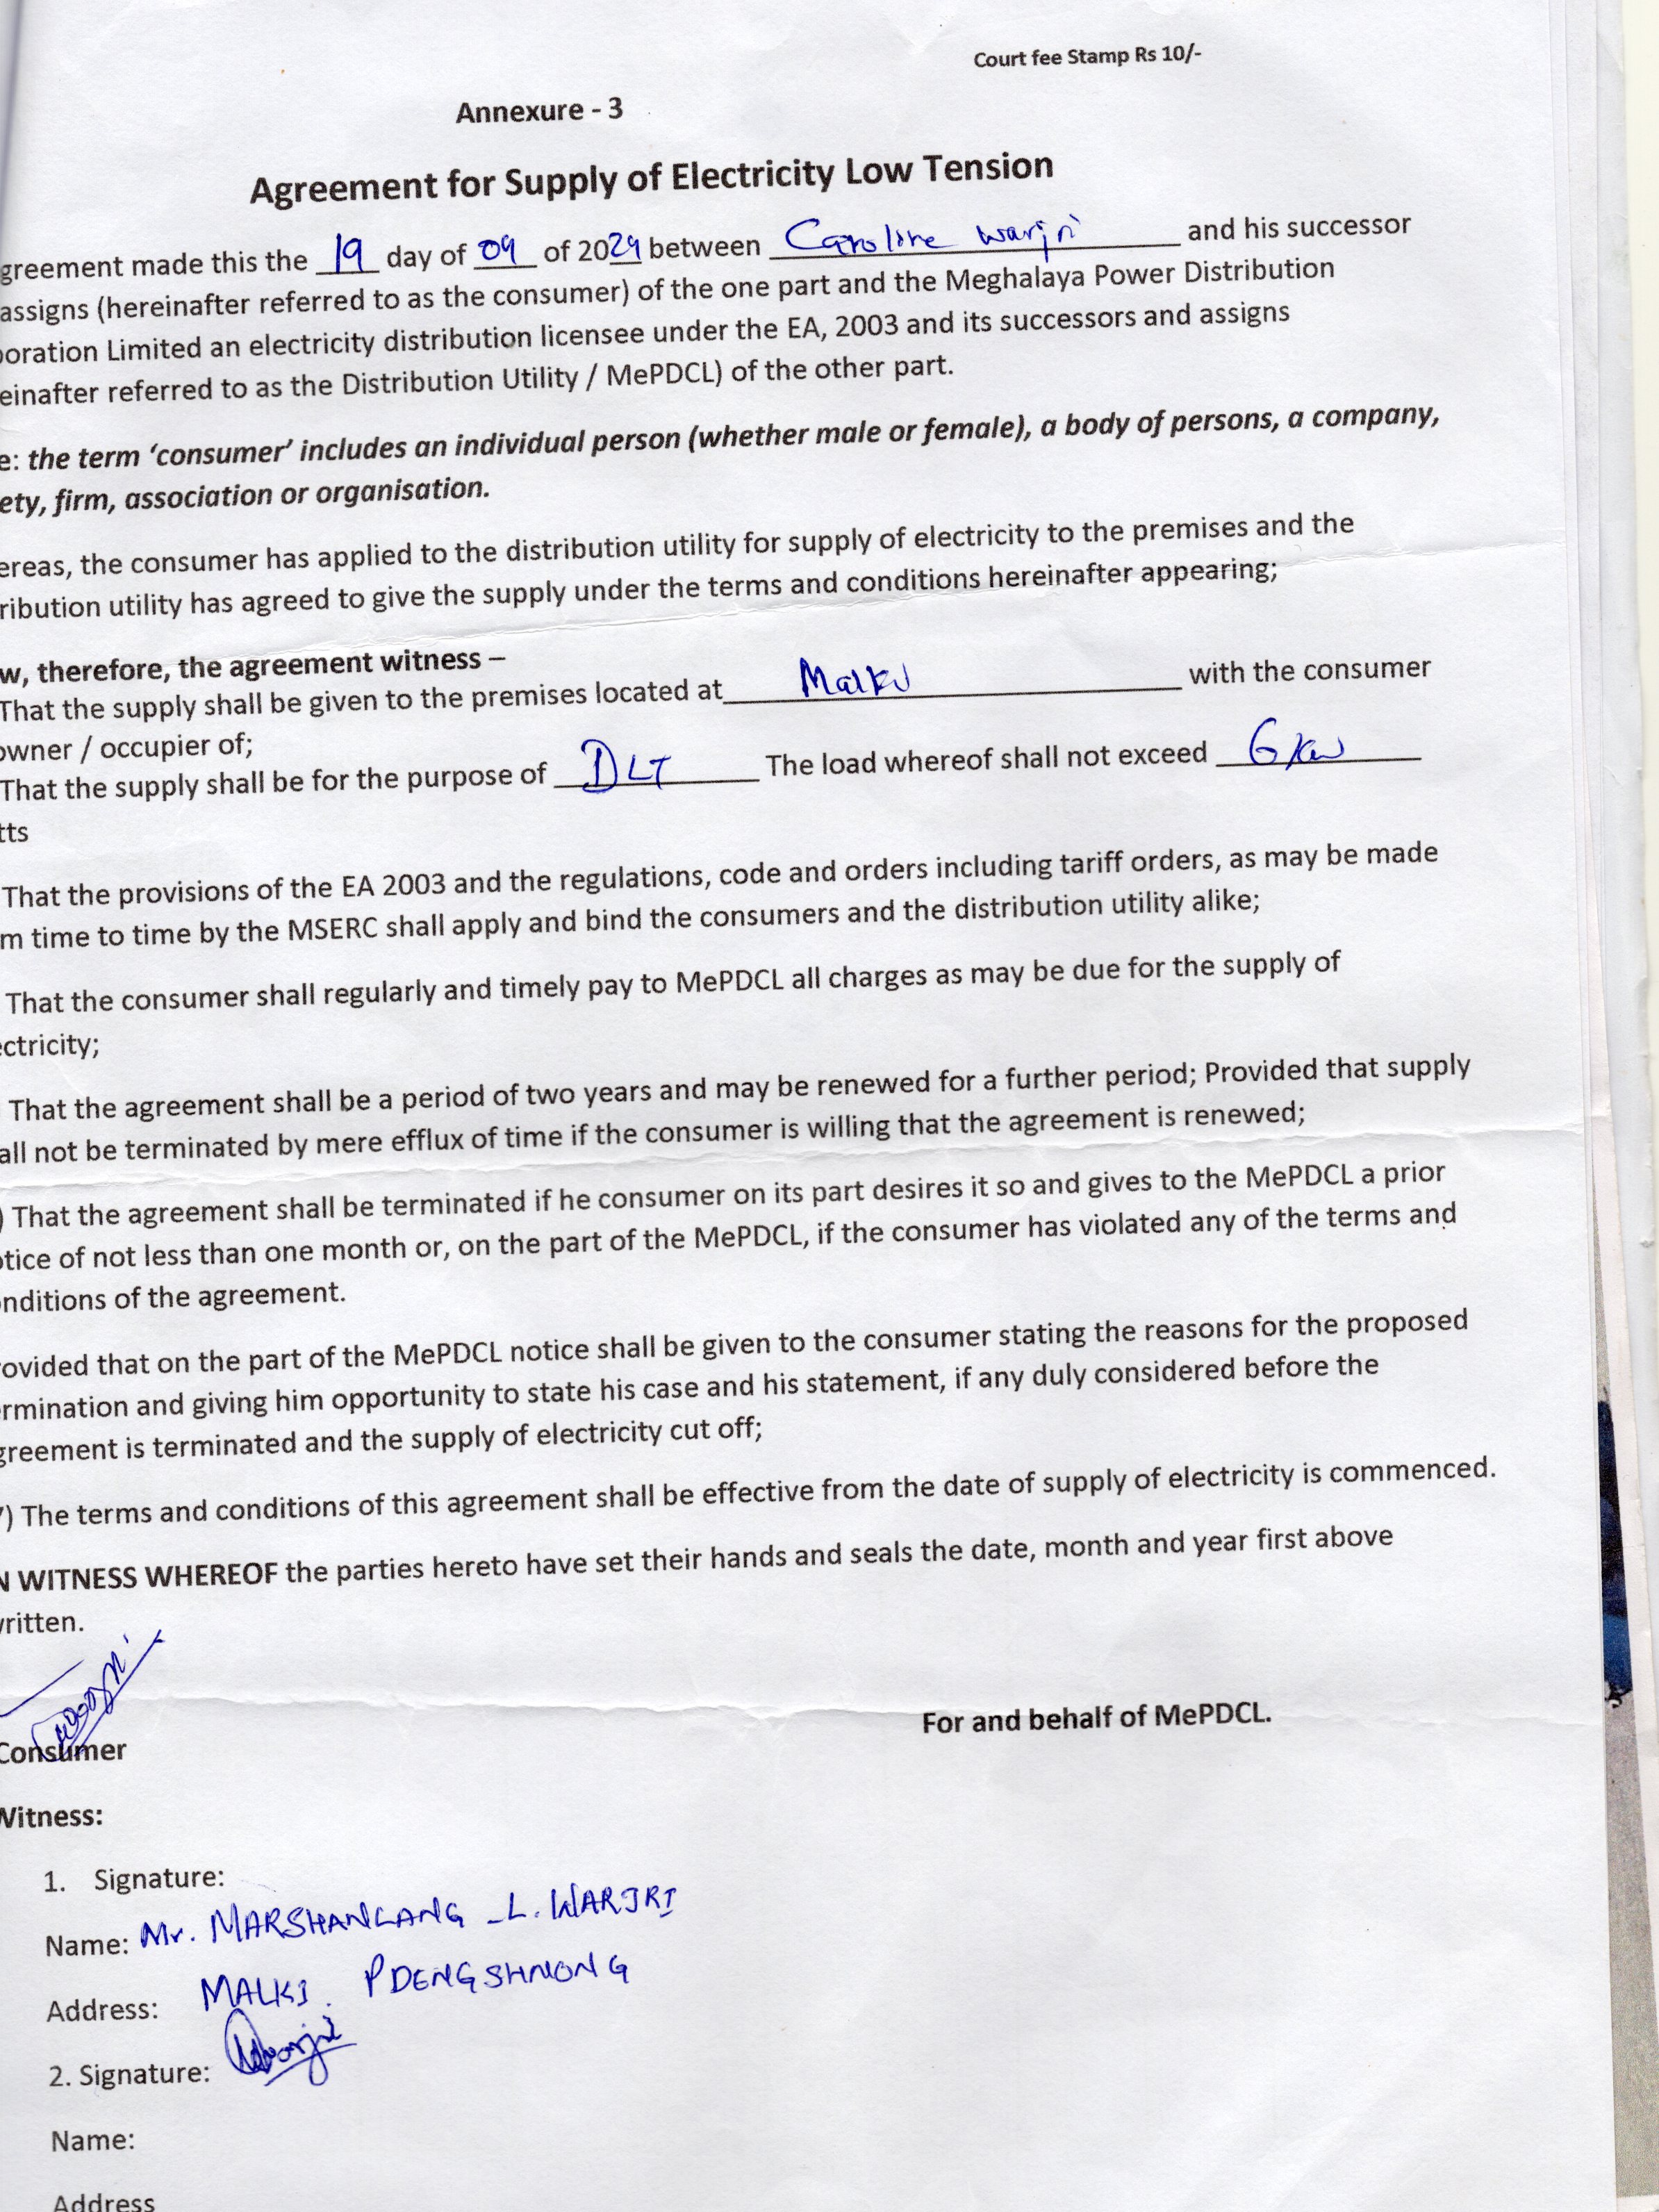 Court fee Stamp Rs 10/-
Annexure - 3
Agreement for Supply of Electricity Low Tension
greement made this the 19 day of 09 of 2024 between Caroline Warjri and his successor
assigns (hereinafter referred to as the consumer) of the one part and the Meghalaya Power Distribution
oration Limited an electricity distribution licensee under the EA, 2003 and its successors and assigns
einafter referred to as the Distribution Utility / MePDCL) of the other part.
e: the term ‘consumer’ includes an individual person (whether male or female), a body of persons, a company,
ety, firm, association or organisation.
ereas, the consumer has applied to the distribution utility for supply of electricity to the premises and the
ribution utility has agreed to give the supply under the terms and conditions hereinafter appearing;
w, therefore, the agreement witness –
That the supply shall be given to the premises located at Malki with the consumer
owner / occupier of;
That the supply shall be for the purpose of DLT The load whereof shall not exceed 6 kw
tts
That the provisions of the EA 2003 and the regulations, code and orders including tariff orders, as may be made
m time to time by the MSERC shall apply and bind the consumers and the distribution utility alike;
That the consumer shall regularly and timely pay to MePDCL all charges as may be due for the supply of
ectricity;
That the agreement shall be a period of two years and may be renewed for a further period; Provided that supply
all not be terminated by mere efflux of time if the consumer is willing that the agreement is renewed;
) That the agreement shall be terminated if he consumer on its part desires it so and gives to the MePDCL a prior
otice of not less than one month or, on the part of the MePDCL, if the consumer has violated any of the terms and
onditions of the agreement.
rovided that on the part of the MePDCL notice shall be given to the consumer stating the reasons for the proposed
ermination and giving him opportunity to state his case and his statement, if any duly considered before the
greement is terminated and the supply of electricity cut off;
) The terms and conditions of this agreement shall be effective from the date of supply of electricity is commenced.
N WITNESS WHEREOF the parties hereto have set their hands and seals the date, month and year first above
written.
For and behalf of MePDCL.
Consumer
Witness:
1. Signature:
Name: Mr. MARSHANLANG L. WARJRI
Address: MALKI. PDENGSHNONG
2. Signature: Warjri
Name:
Address